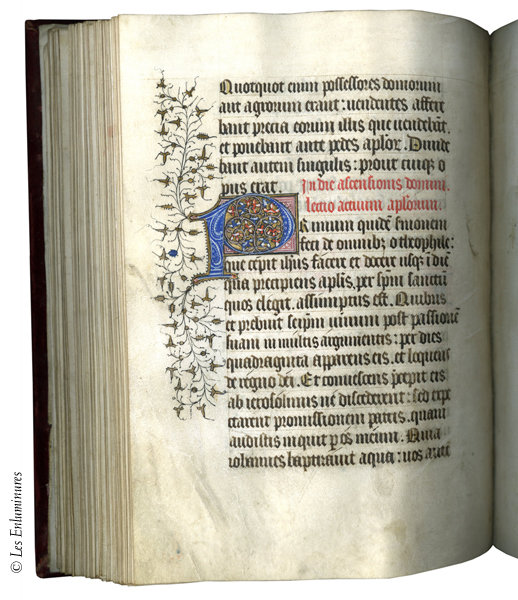 Quotquot enim possessores domorum
aut agrorum erant: uendentes affere
bant precia eorum illis que uendebāt.
et ponebant ante pedes aplōꝝ. Diuide
bant autem singulis: prout cuiqꝫ o
pus erat. In die ascensionis domini.
lectio actuum aplōrum.
PRimum quidē sermonem
feci de omnibꝫ o theophile:
que cepit ihūs facere et docere usqꝫ ī diē
qua precipiens aplīs. per spm̄ sanctū
quos elegit. assumptus est. Quibus
et prebuit seipm̄ uiuum post passionē
suam in multis argumentis: per dies
quadraginta apparens eis. et loquens
de regno dei. Et conuescens p̄cepit eis
ab ierosolimis ne discederent: sed expe
ctarent promissionem patris. quam
audistis inquit ꝑ os meum. Quia
iohannes baptizauit aqua: uos autē
© Les Enluminures